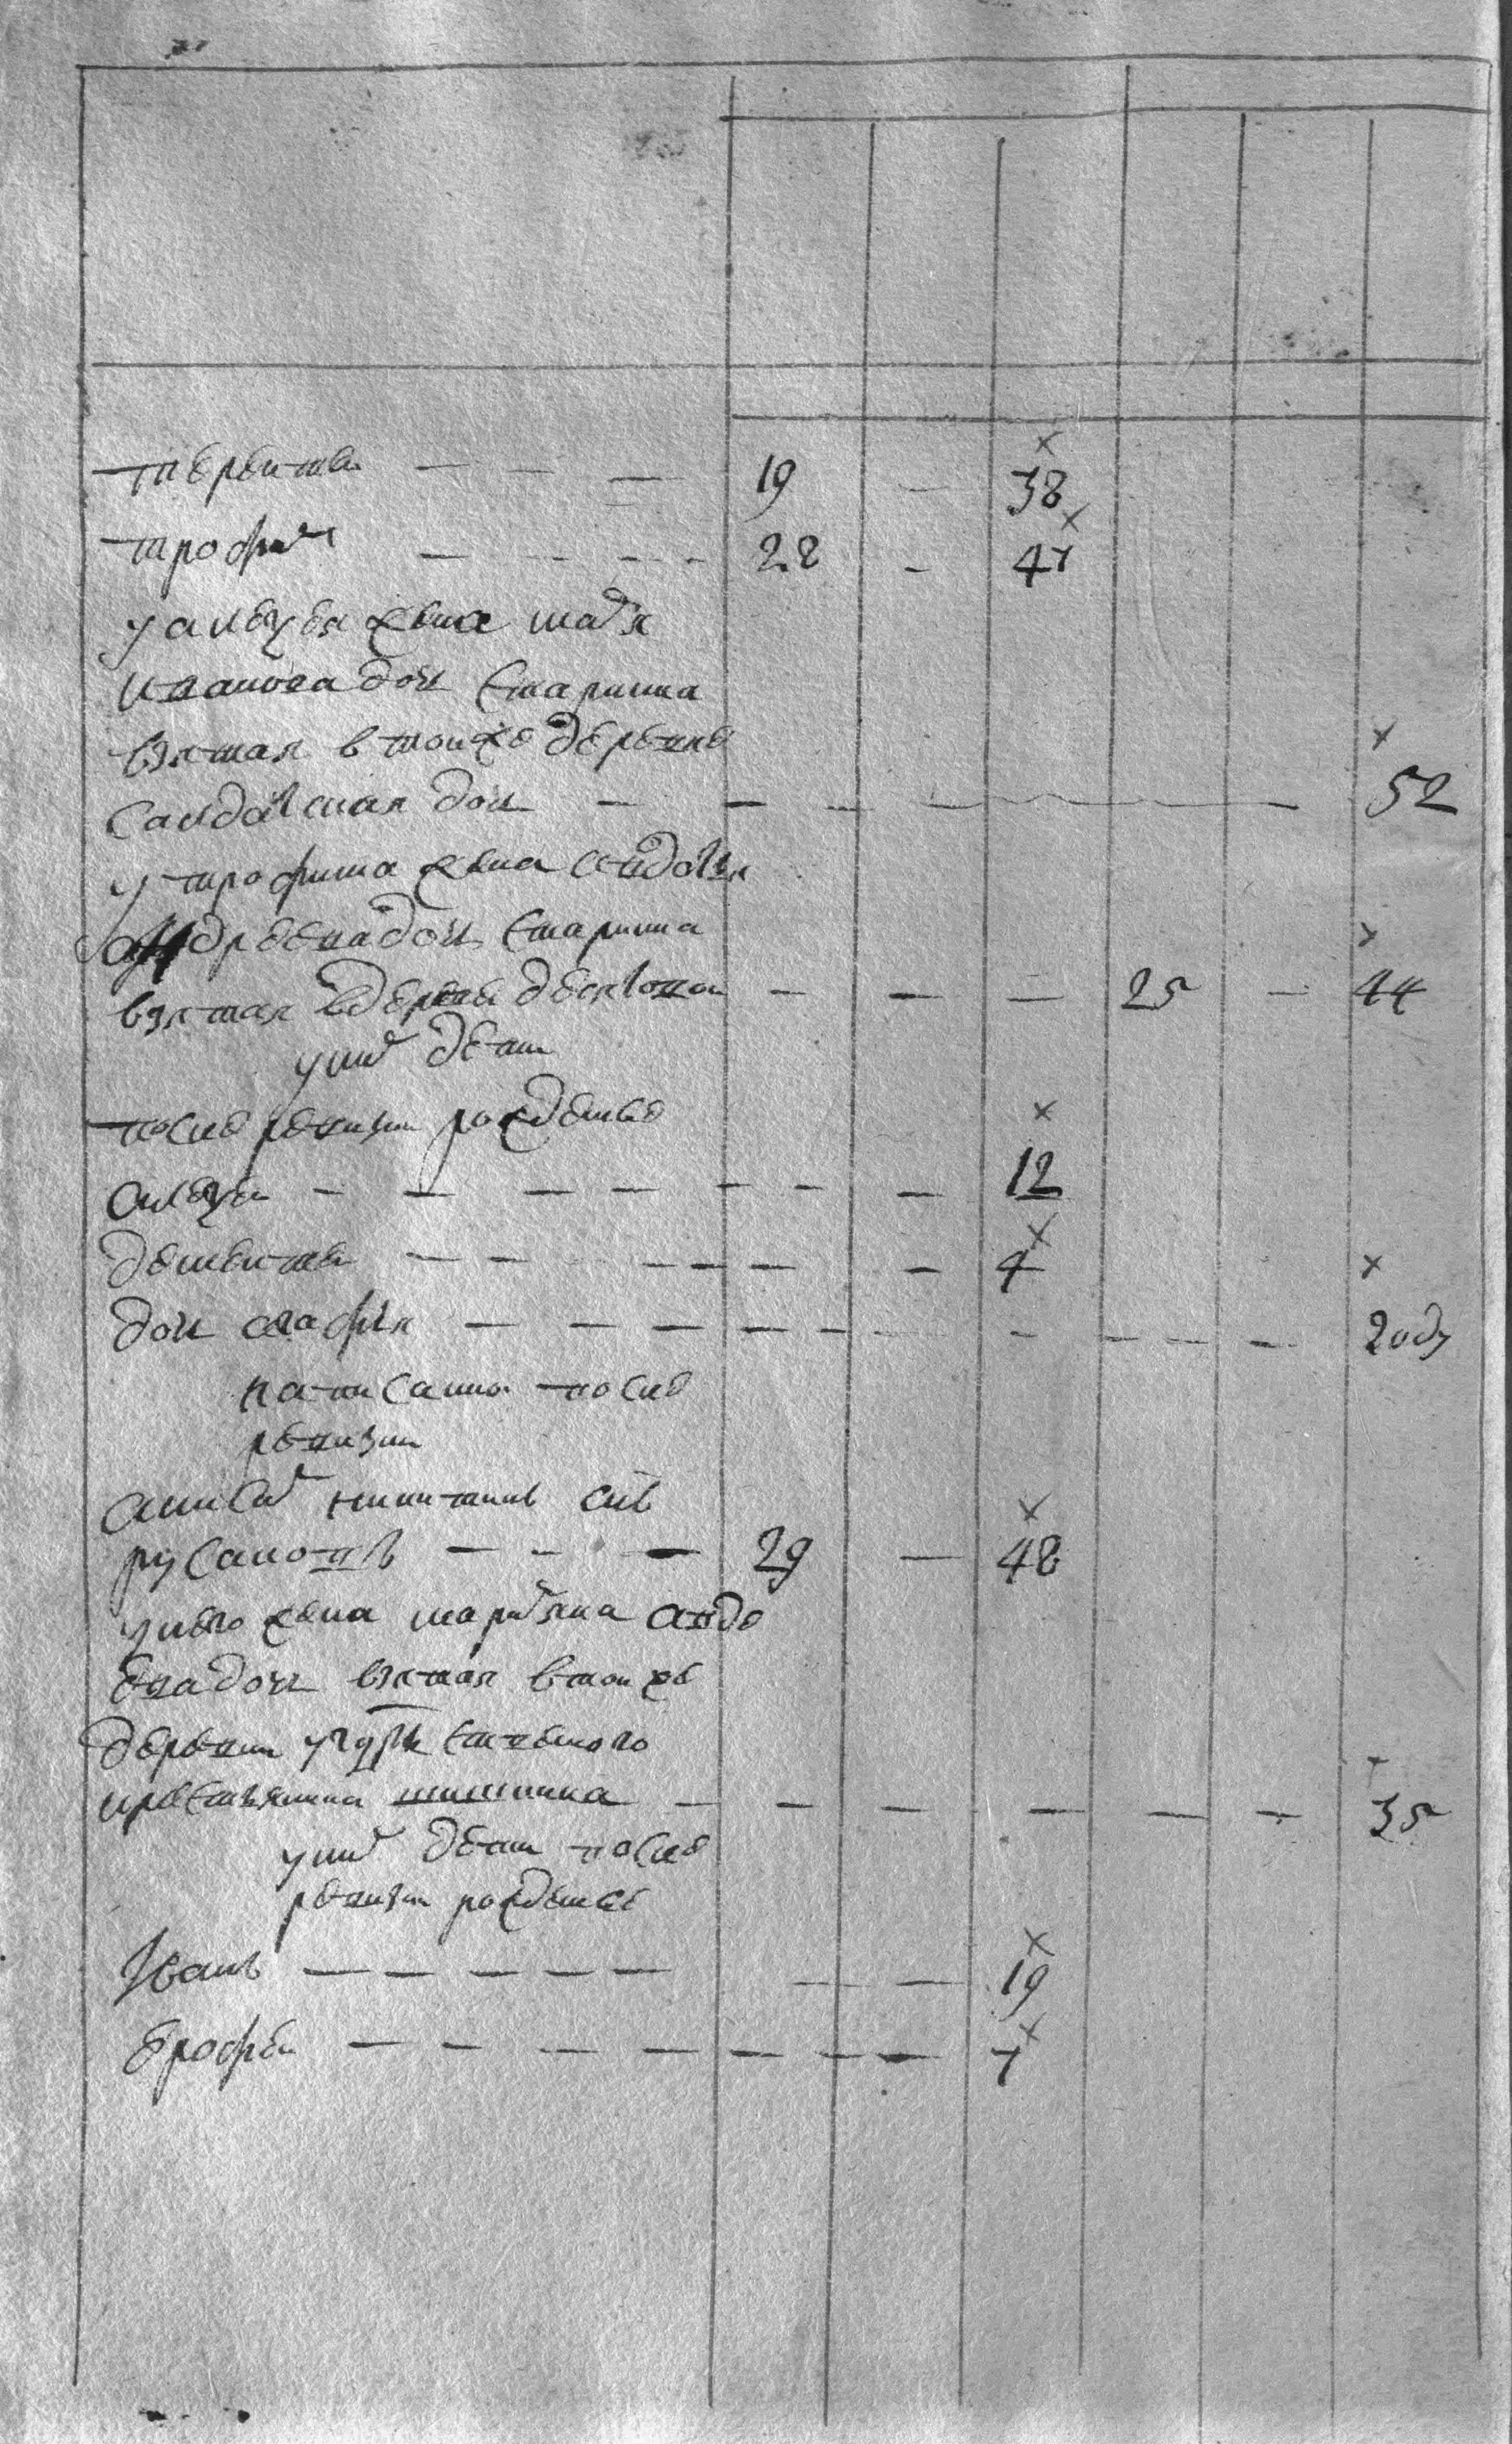 терентеи — — — 19 — 38
трофим — — — 28 — 47
у алексея жена мавря
иванова дочь старинна
взятая в тоиже деревне
салдатская дочь — — — 52
у трофима жена авдотя
андреева дочь старинна
взятая в деревне — — — 25 — 44
у них дети
после ревизии рожденые
алексеи — — — 12
дементеи — — — 4
дочь агафья — — — 2 году
написанны после
ревизии
анисим никитинъ снъ
русановъ — — — 29 — 48
у него жена марьяна авде
ева дочь взятая в тои же
деревни у государственного
крестьянина шишкина — — — 35
у них дети после
ревизии рожденые
Иванъ — — — 19
ерофеи — — — 7